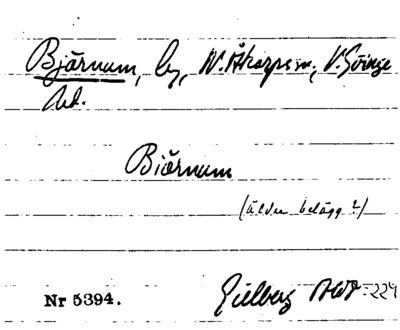 Bjärnum, by, N. Åkarps sn, V. Göinge
hd.
Biärnum
(äldre belägg?)
Nr 5394.
Gillberg